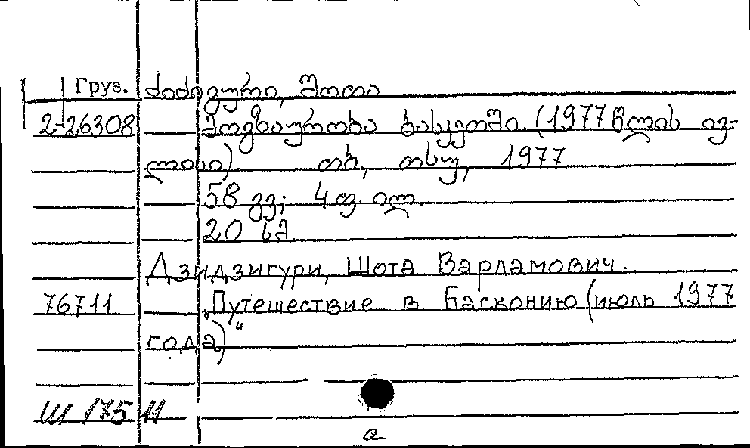 Груз. ძიძიგური, შოთა
2-26308 მოგზაურობა ბასკეთში (1977 წლის ივ-
ლისი) თბ., თსუ, 1977
58 გვ; 4 ფ. ილ.
20 სმ
Дзидзигури, Шота Варламович.
76711 „Путешествие в Басконию (июль 1977
года)“
Ш 175 И
a